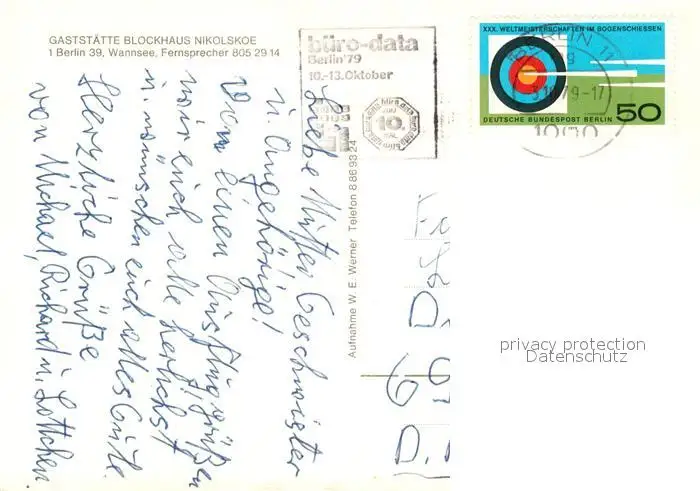 GASTSTÄTTE BLOCKHAUS NIKOLSKOE
1 Berlin 39, Wannsee, Fernsprecher 805 29 14
büro-data
Berlin '79
10.-13. Oktober
büro data
10.
XXX. WELTMEISTERSCHAFTEN IM BOGENSCHIESSEN
DEUTSCHE BUNDESPOST BERLIN 50
BERLIN 11
79-17
1000
Liebe Mutter Geschwister
u Angehörige!
Von einen Ausflug grüßen
wir euch alle herlichst
u. wünschen euch alles Gute.
Herzliche Grüße
von Michael, Richard u. Lottchen
Aufnahme W. E. Werner Telefon 8 86 93 24
D
6
D.
privacy protection
Datenschutz